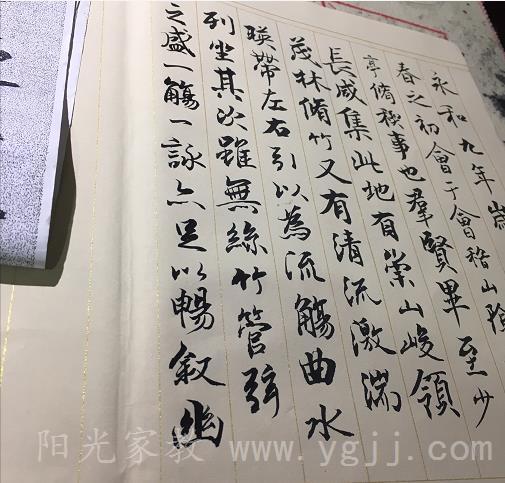 永和九年歲
春之初會于會稽山陰
亭脩稧事也羣賢畢至少
長咸集此地有崇山峻領
茂林脩竹又有清流激湍
暎帶左右引以為流觴曲水
列坐其次雖無絲竹管弦
之盛一觴一詠亦足以暢叙幽
阳光家教 www.ygjj.com